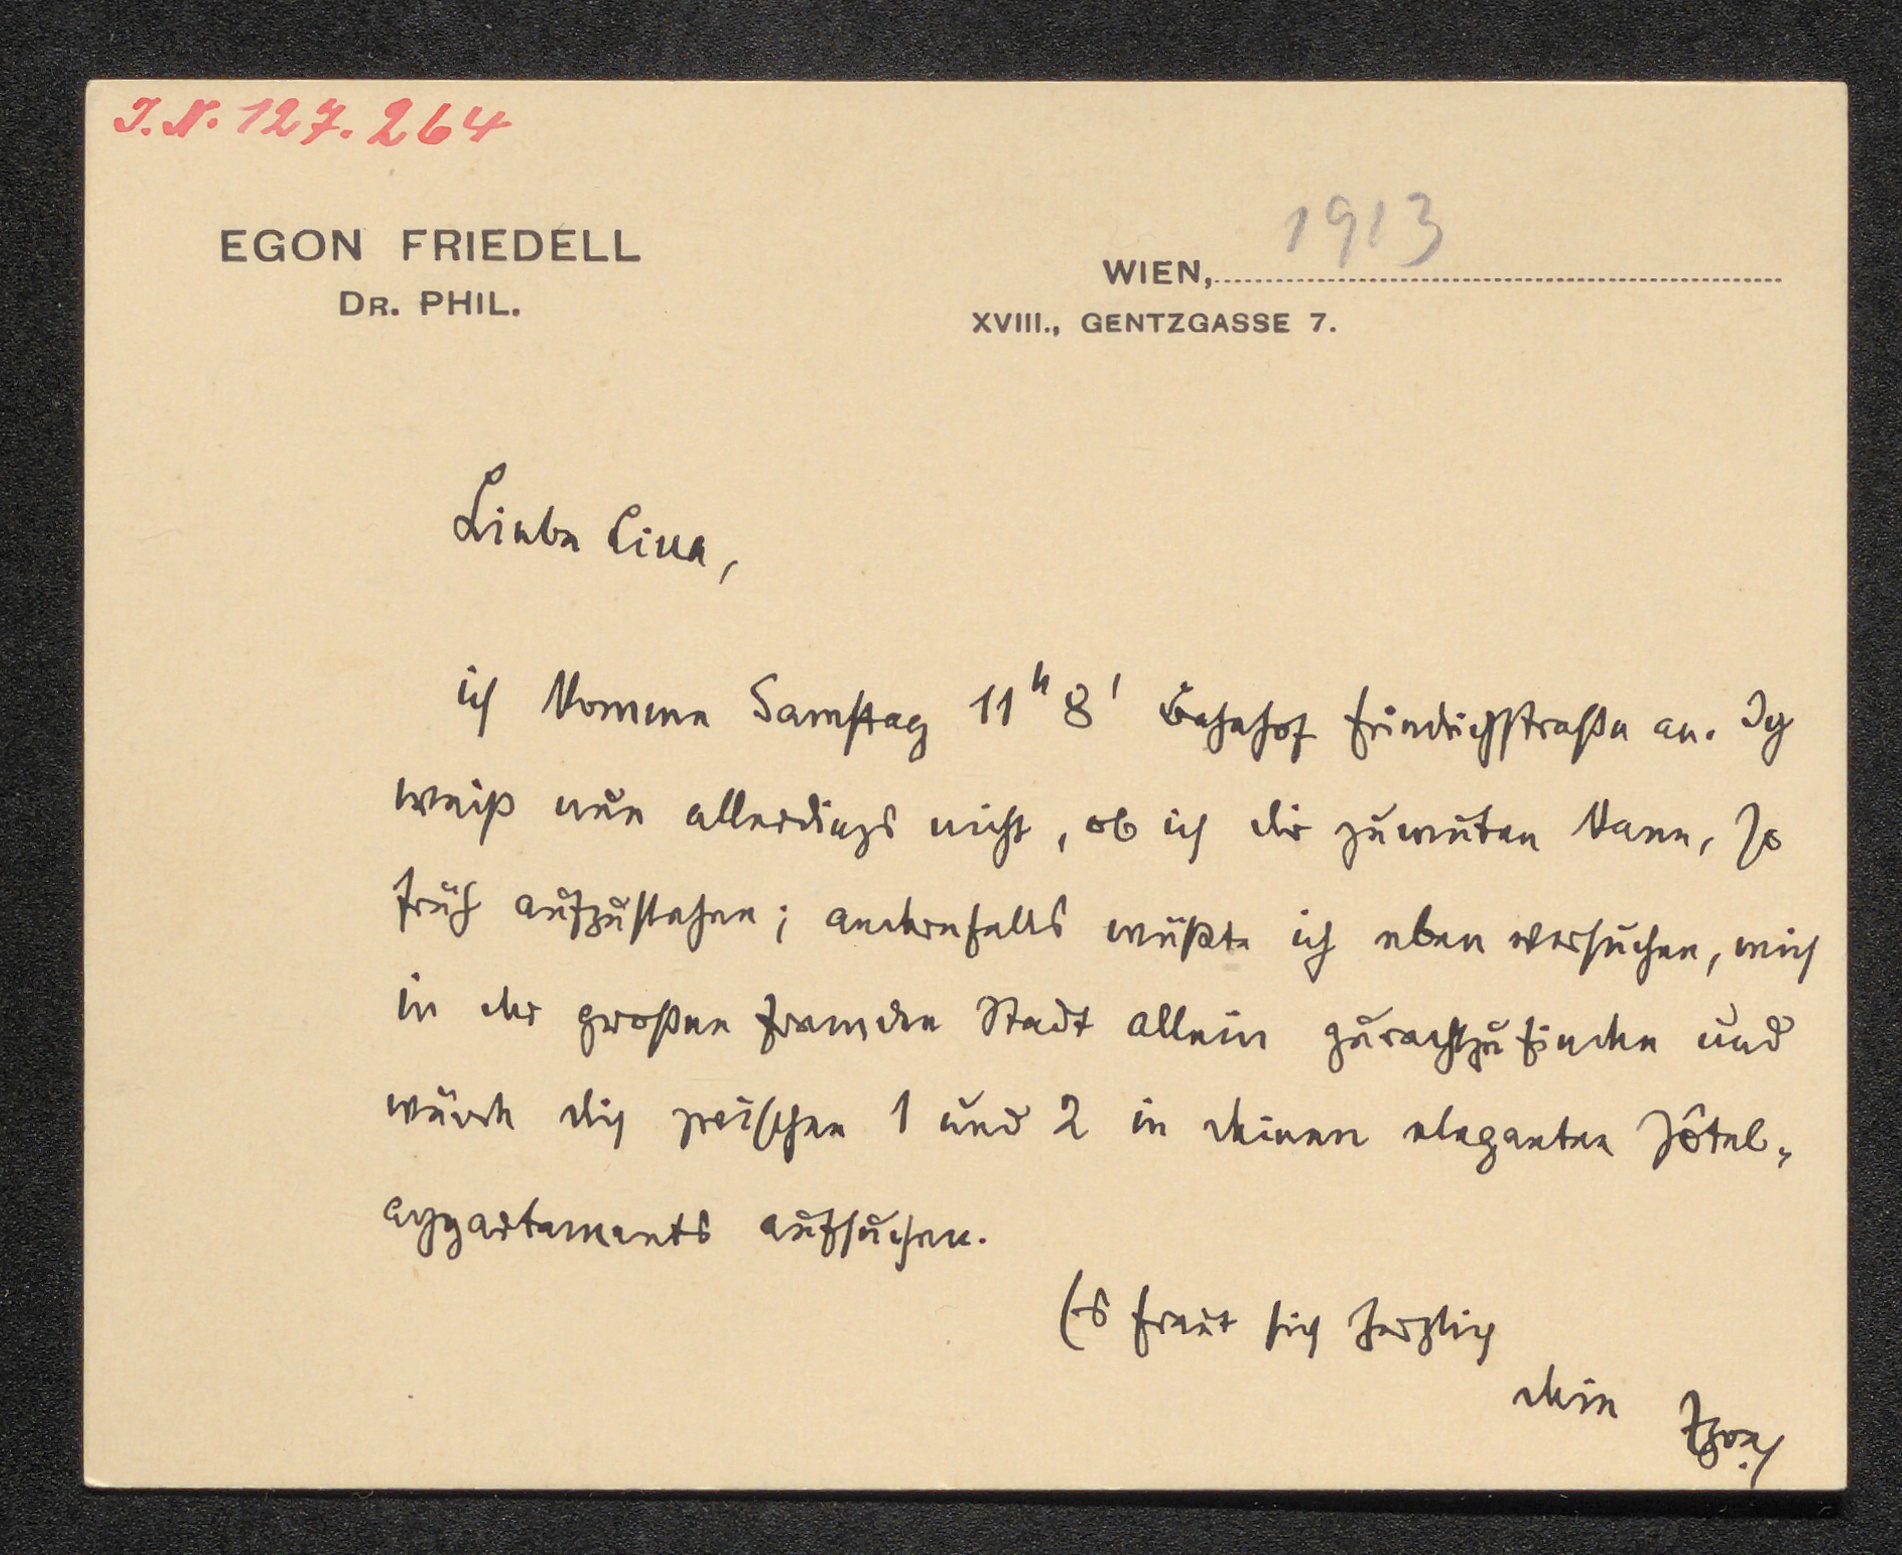 I. N. 127.264
EGON FRIEDELL
DR. PHIL.
1913
WIEN,
XVIII., GENTZGASSE 7.
Liebe Lina,
ich komme Samstag 11h 8' Bahnhof Friedrichstraße an. Ich
weiß nun allerdings nicht, ob ich dir zumuten kann, so
früh aufzustehen; andernfalls müßte ich eben versuchen, mich
in der großen fremden Stadt allein zurechtzufinden und
würde dich zwischen 1 und 2 in deinen eleganten Hôtel-
appartements aufsuchen.
Es freut sich herzlich
dein Egon